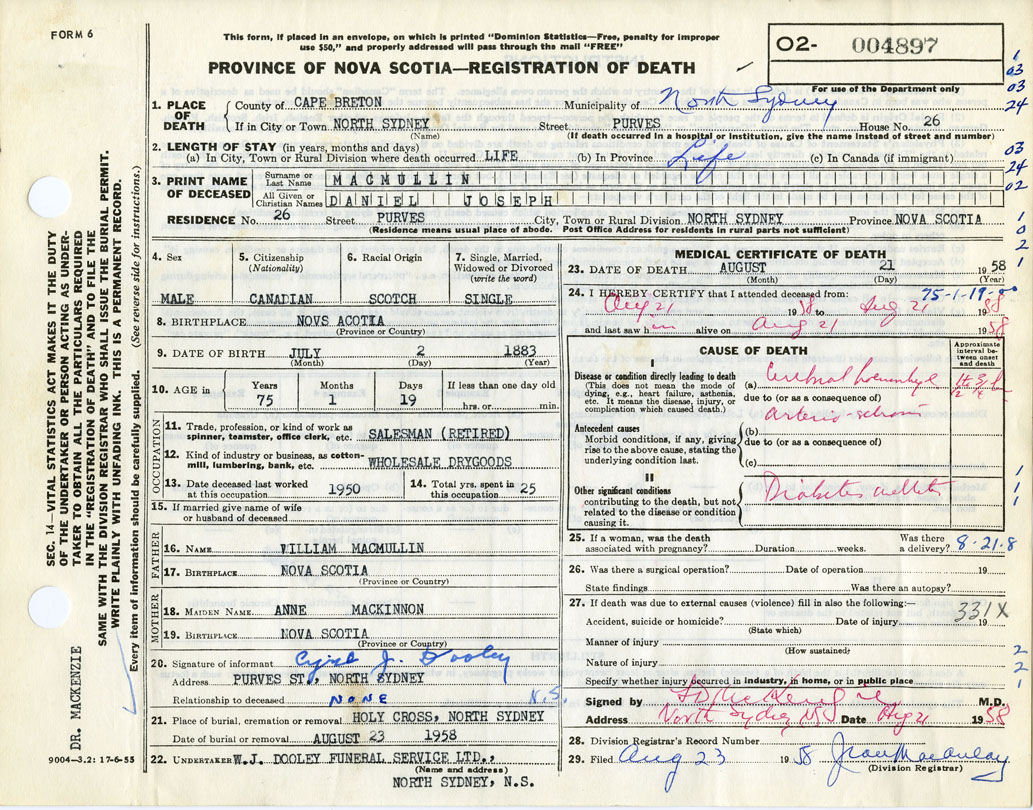 FORM 6
This form, if placed in an envelope, on which is printed "Dominion Statistics—Free, penalty for improper
use $50," and properly addressed will pass through the mail "FREE"
PROVINCE OF NOVA SCOTIA—REGISTRATION OF DEATH
02- 004897
For use of the Department only
1. PLACE OF DEATH
County of CAPE BRETON Municipality of North Sydney
If in City or Town NORTH SYDNEY Street PURVES House No. 26
(Name) (If death occurred in a hospital or institution, give the name instead of street and number)
2. LENGTH OF STAY (in years, months and days)
(a) In City, Town or Rural Division where death occurred LIFE (b) In Province Life (c) In Canada (if immigrant)
3. PRINT NAME OF DECEASED
Surname or Last Name MACMULLIN
All Given or Christian Names DANIEL JOSEPH
RESIDENCE No. 26 Street PURVES City, Town or Rural Division NORTH SYDNEY Province NOVA SCOTIA
(Residence means usual place of abode. Post Office Address for residents in rural parts not sufficient)
1
03
03
24
03
24
02
1
0
2
1
4. Sex
MALE
5. Citizenship
(Nationality)
CANADIAN
6. Racial Origin
SCOTCH
7. Single, Married,
Widowed or Divorced
(write the word)
SINGLE
8. BIRTHPLACE NOVS ACOTIA
(Province or Country)
9. DATE OF BIRTH JULY 2 1883
(Month) (Day) (Year)
10. AGE in
Years Months Days If less than one day old
75 1 19 hrs. or min.
OCCUPATION
11. Trade, profession, or kind of work as
spinner, teamster, office clerk, etc. SALESMAN (RETIRED)
12. Kind of industry or business, as cotton-
mill, lumbering, bank, etc. WHOLESALE DRYGOODS
13. Date deceased last worked
at this occupation 1950
14. Total yrs. spent in
this occupation 25
15. If married give name of wife
or husband of deceased
FATHER
16. NAME WILLIAM MACMULLIN
17. BIRTHPLACE NOVA SCOTIA
(Province or Country)
MOTHER
18. MAIDEN NAME ANNE MACKINNON
19. BIRTHPLACE NOVA SCOTIA
(Province or Country)
20. Signature of informant Cyril J. Dooley
Address PURVES ST., NORTH SYDNEY
Relationship to deceased NONE N.S.
21. Place of burial, cremation or removal HOLY CROSS, NORTH SYDNEY
Date of burial or removal AUGUST 23 1958
22. UNDERTAKER W.J. DOOLEY FUNERAL SERVICE LTD.,
(Name and address)
NORTH SYDNEY, N.S.
MEDICAL CERTIFICATE OF DEATH
23. DATE OF DEATH AUGUST 21 1958
(Month) (Day) (Year)
75-1-19
24. I HEREBY CERTIFY that I attended deceased from:
Aug 21 1958 to Aug 21 1958
and last saw him alive on Aug 21 1958
CAUSE OF DEATH
Approximate
interval be-
tween onset
and death
I
Disease or condition directly leading to death
(This does not mean the mode of
dying, e.g., heart failure, asthenia,
etc. It means the disease, injury, or
complication which caused death.)
(a) Cerebral
due to (or as a consequence of)
Arterio-
Antecedent causes
Morbid conditions, if any, giving
rise to the above cause, stating the
underlying condition last.
(b)
due to (or as a consequence of)
(c)
II
Other significant conditions
contributing to the death, but not
related to the disease or condition
causing it.
Diabetes mellitus
1
1
1
25. If a woman, was the death
associated with pregnancy? Duration weeks. Was there
a delivery? 8-21-8
26. Was there a surgical operation? Date of operation 19
State findings Was there an autopsy?
27. If death was due to external causes (violence) fill in also the following:— 331X
Accident, suicide or homicide? Date of injury 19
(State which)
Manner of injury
(How sustained)
Nature of injury
Specify whether injury occurred in industry, in home, or in public place
2
2
1
Signed by M.D.
Address North Sydney NS Date Aug 21 1958
28. Division Registrar's Record Number
29. Filed Aug 23 1958
(Division Registrar)
SEC. 14—VITAL STATISTICS ACT MAKES IT THE DUTY
OF THE UNDERTAKER OR PERSON ACTING AS UNDER-
TAKER TO OBTAIN ALL THE PARTICULARS REQUIRED
IN THE "REGISTRATION OF DEATH" AND TO FILE THE
SAME WITH THE DIVISION REGISTRAR WHO SHALL ISSUE THE BURIAL PERMIT.
WRITE PLAINLY WITH UNFADING INK. THIS IS A PERMANENT RECORD.
Every item of information should be carefully supplied. (See reverse side for instructions.)
DR. MACKENZIE
9004—3.2: 17-6-55